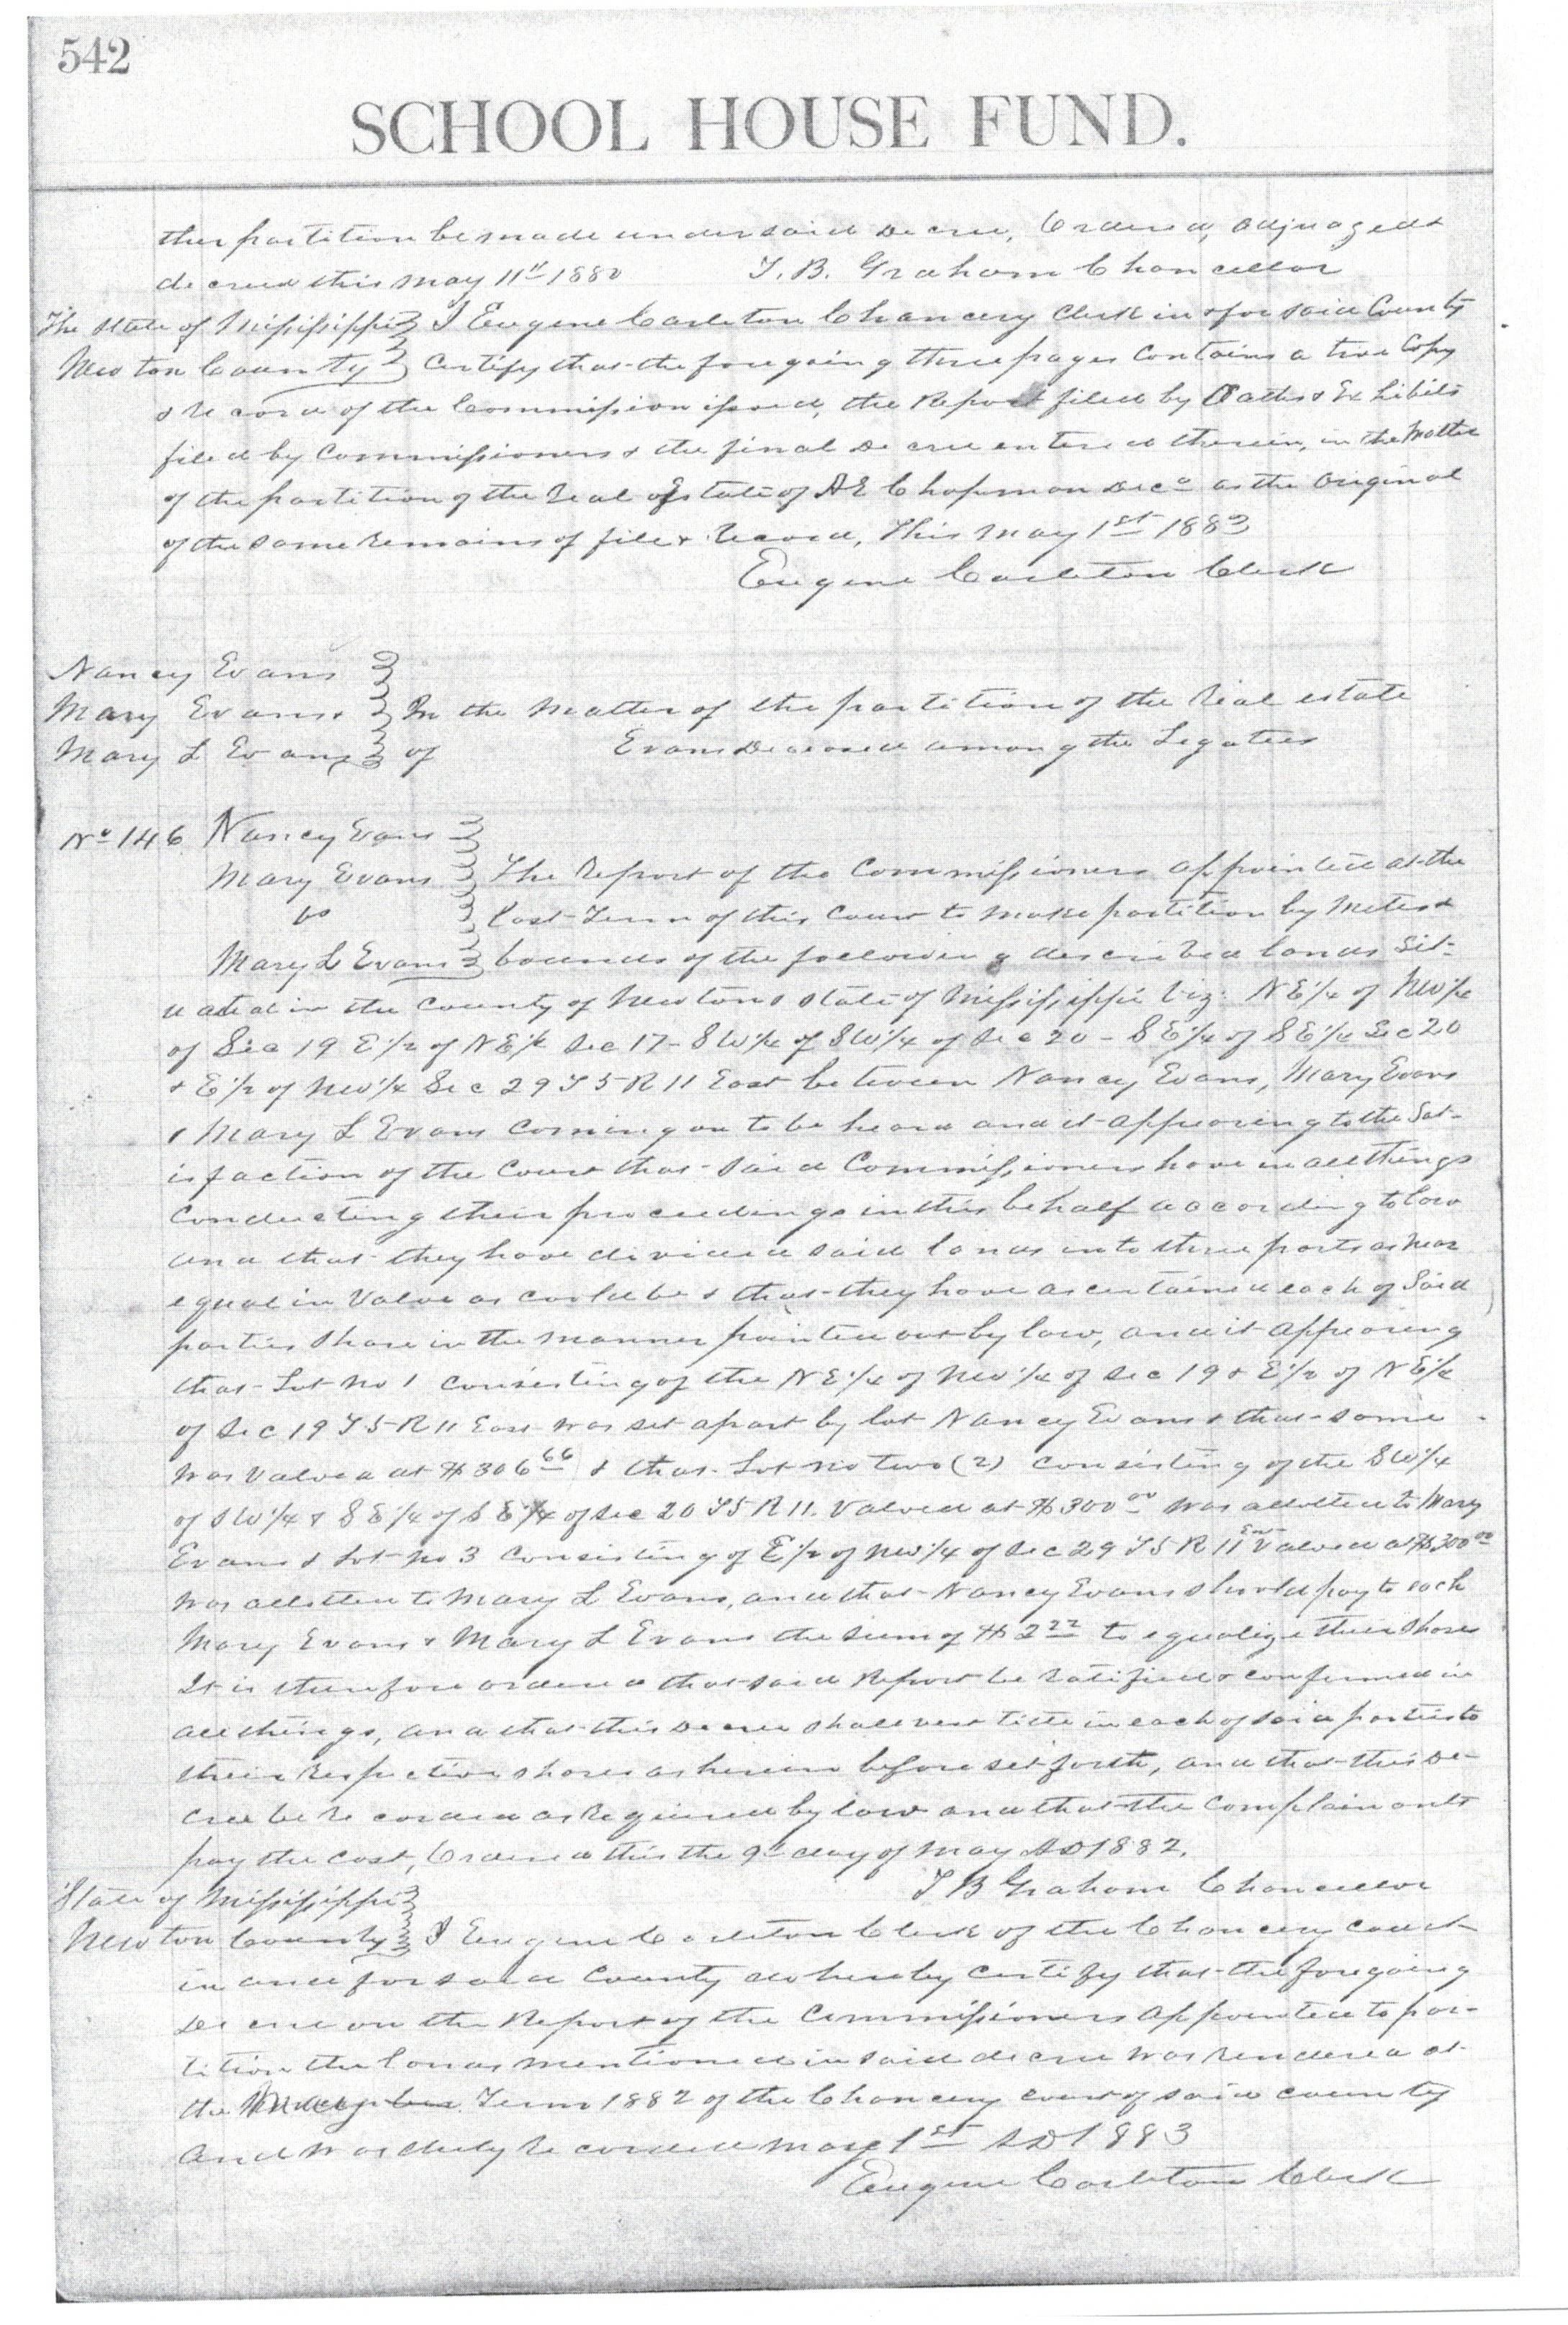 542
SCHOOL HOUSE FUND.
ther partition be made under said decree, Ordered, adjudged &
decreed this May 11" 1880 T. B. Graham Chancellor
The State of Mississippi } I Eugene Carleton Chancery Clerk in & for said County
Newton County } Certify that the foregoing three pages contains a true Copy
& record of the Commission issued, the Report filed by Oaths & Exhibits
filed by Commissioners & the final decree entered therein, in the Matter
of the partition of the Real Estate of A E Chapman Decd as the original
of the same remains of file & Record, This May 1st 1883
Eugene Carleton Clerk
Nancy Evans }
Mary Evans & } In the Matter of the partition of the Real estate
Mary L Evans } of Evans Deceased among the Legatees
No 146 Nancy Evans }
Mary Evans } The Report of the Commissioners appointed at the
vs } last Term of this Court to make partition by Metes &
Mary L Evans } bounds of the following described lands Sit-
uated in the County of Newton & State of Mississippi Viz: N E 1/4 of NW 1/4
of Sec 19 E 1/2 of N E 1/4 Sec 17 - S W 1/4 of S W 1/4 of Sec 20 - S E 1/4 of S E 1/4 Sec 20
& E 1/2 of NW 1/4 Sec 29 T 5 R 11 East between Nancy Evans, Mary Evans
& Mary L Evans coming on to be heard and it appearing to the Sat-
isfaction of the Court that said Commissioners have in all things
conducting their proceedings in this behalf according to law
and that they have divided said lands into three parts as near
equal in Value as could be & that they have ascertained each of Said
parties share in the manner pointed out by law, and it appearing
that Lot No 1 consisting of the N E 1/4 of NW 1/4 of Sec 19 & E 1/2 of N E 1/4
of Sec 19 T 5 R 11 East was set apart by lot Nancy Evans & that same
was valued at $306 66 & that Lot No Two (2) consisting of the S W 1/4
of S W 1/4 & S E 1/4 of S E 1/4 of Sec 20 T 5 R 11. Valued at $300 00 was allotted to Mary
Evans & Lot No 3 consisting of E 1/2 of NW 1/4 of Sec 29 T 5 R 11 East Valued at $300 00
was allotted to Mary L Evans, and that Nancy Evans should pay to each
Mary Evans & Mary L Evans the sum of $2 22 to equalize their shares
It is therefore ordered that said Report be ratified & confirmed in
all things, and that this Decree shall vest title in each of said parties to
their respective shares as herein before set forth, and that this De-
cree be recorded as required by law and that the complainants
pay the cost, Ordered this the 9" day of May AD 1882.
T B Graham Chancellor
State of Mississippi }
Newton County } I Eugene Carleton Clerk of the Chancery Court
in and for said County do hereby certify that the foregoing
Decree on the Report of the Commissioners appointed to par-
tition the lands mentioned in said decree was rendered at
the May Term 1882 of the Chancery court of said county
and was duly recorded May 1st AD 1883
Eugene Carleton Clerk